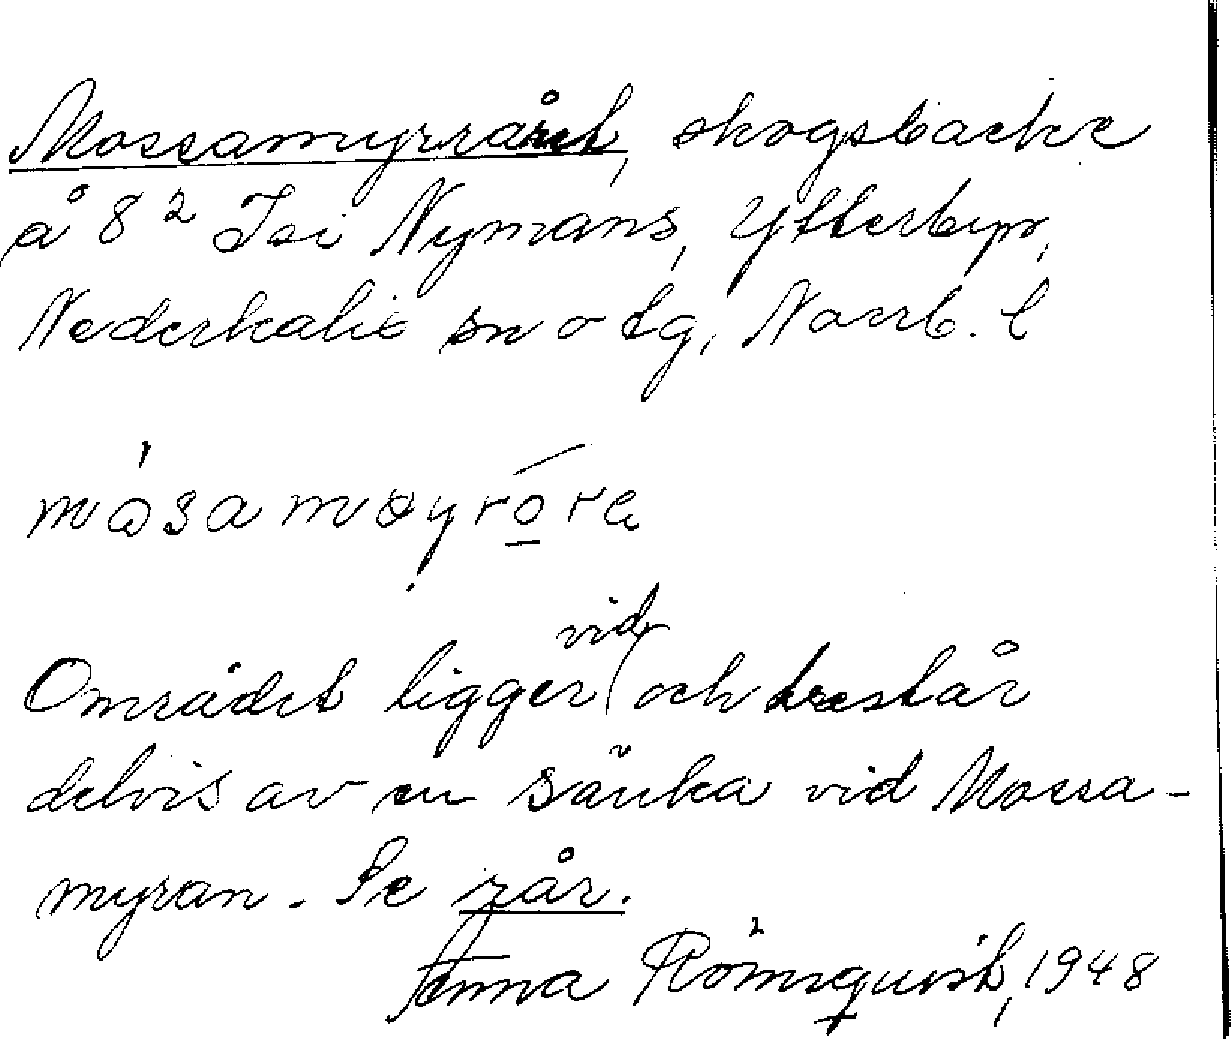 Mossamyrråret, skogsbacke
å 8² Isi Nymans, Ytterbyn,
Nederkalix sn o tg, Norrb. l
måsamøyrǫ́re
Området ligger vid och består
delvis av en sänka vid Mossa-
myran. Se rår.
Anna Römqvist, 1948